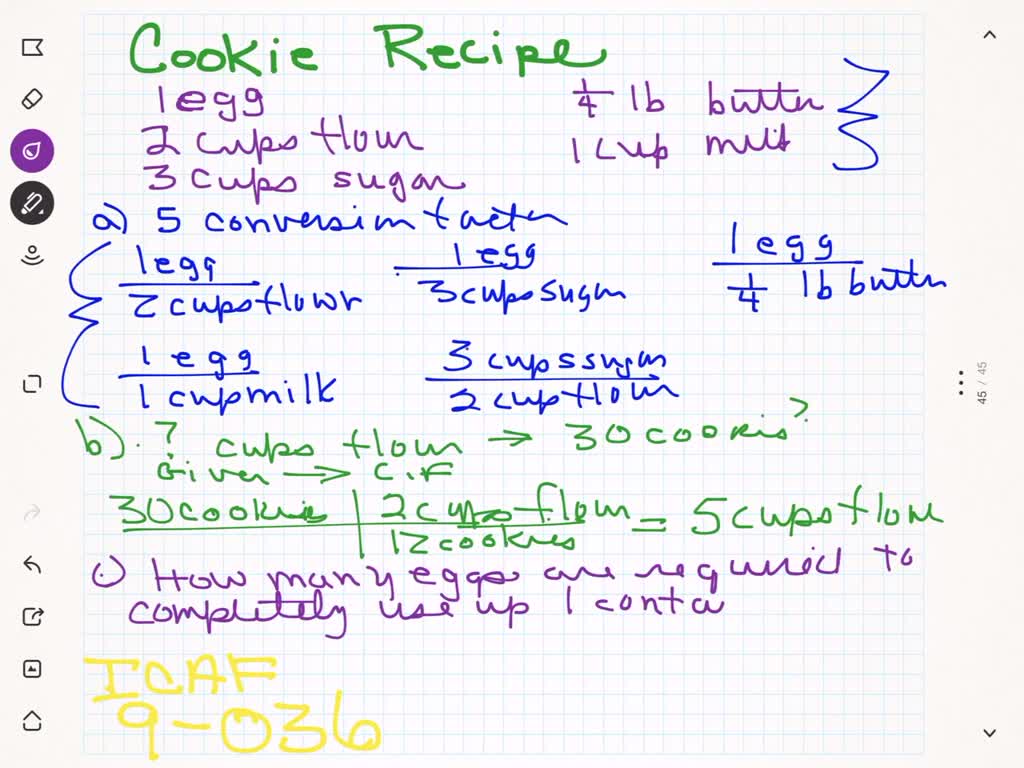 Cookie Recipe
1 egg 1/4 lb butter
2 cups flour 1 cup milk
3 cups sugar
a) 5 conversion factor
1 egg / 2 cups flowr 1 egg / 3 cups sugar 1 egg / 1/4 lb butter
1 egg / 1 cup milk 3 cups sugar / 2 cup flour
b). ? cups flour → 30 cookies?
Given → C.F
30 cookies | 2 cups flour / 12 cookies = 5 cups flour
c) How many eggs are required to
completely use up 1 conta
ICAF
9-036
45 / 45